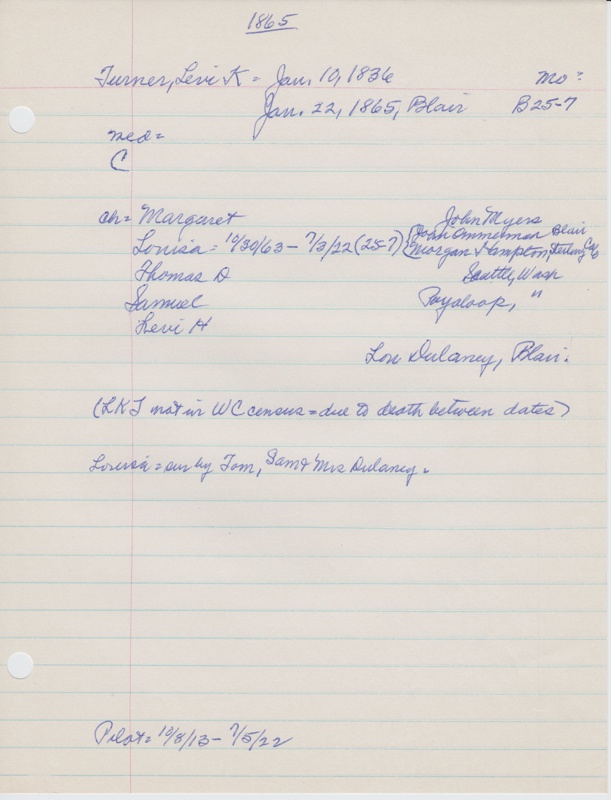 1865
Turner, Levi K = Jan. 10, 1836 Mo:
Jan. 22, 1865, Blair B25-7
med=
C
ch= Margaret John Myers
Louisa = 10/30/63 - 7/3/22 (25-7) (John Ammerman Blair
(Morgan Hampton, Sterling Colo
Thomas D Seattle, Wash
Samuel Payaloop, "
Levi H
Lou Dulaney, Blair.
(LKT not in WC census = due to death between dates)
Louisa = sur by Tom, Sam & Mrs Dulaney.
Pilot = 10/8/13 - 7/5/22